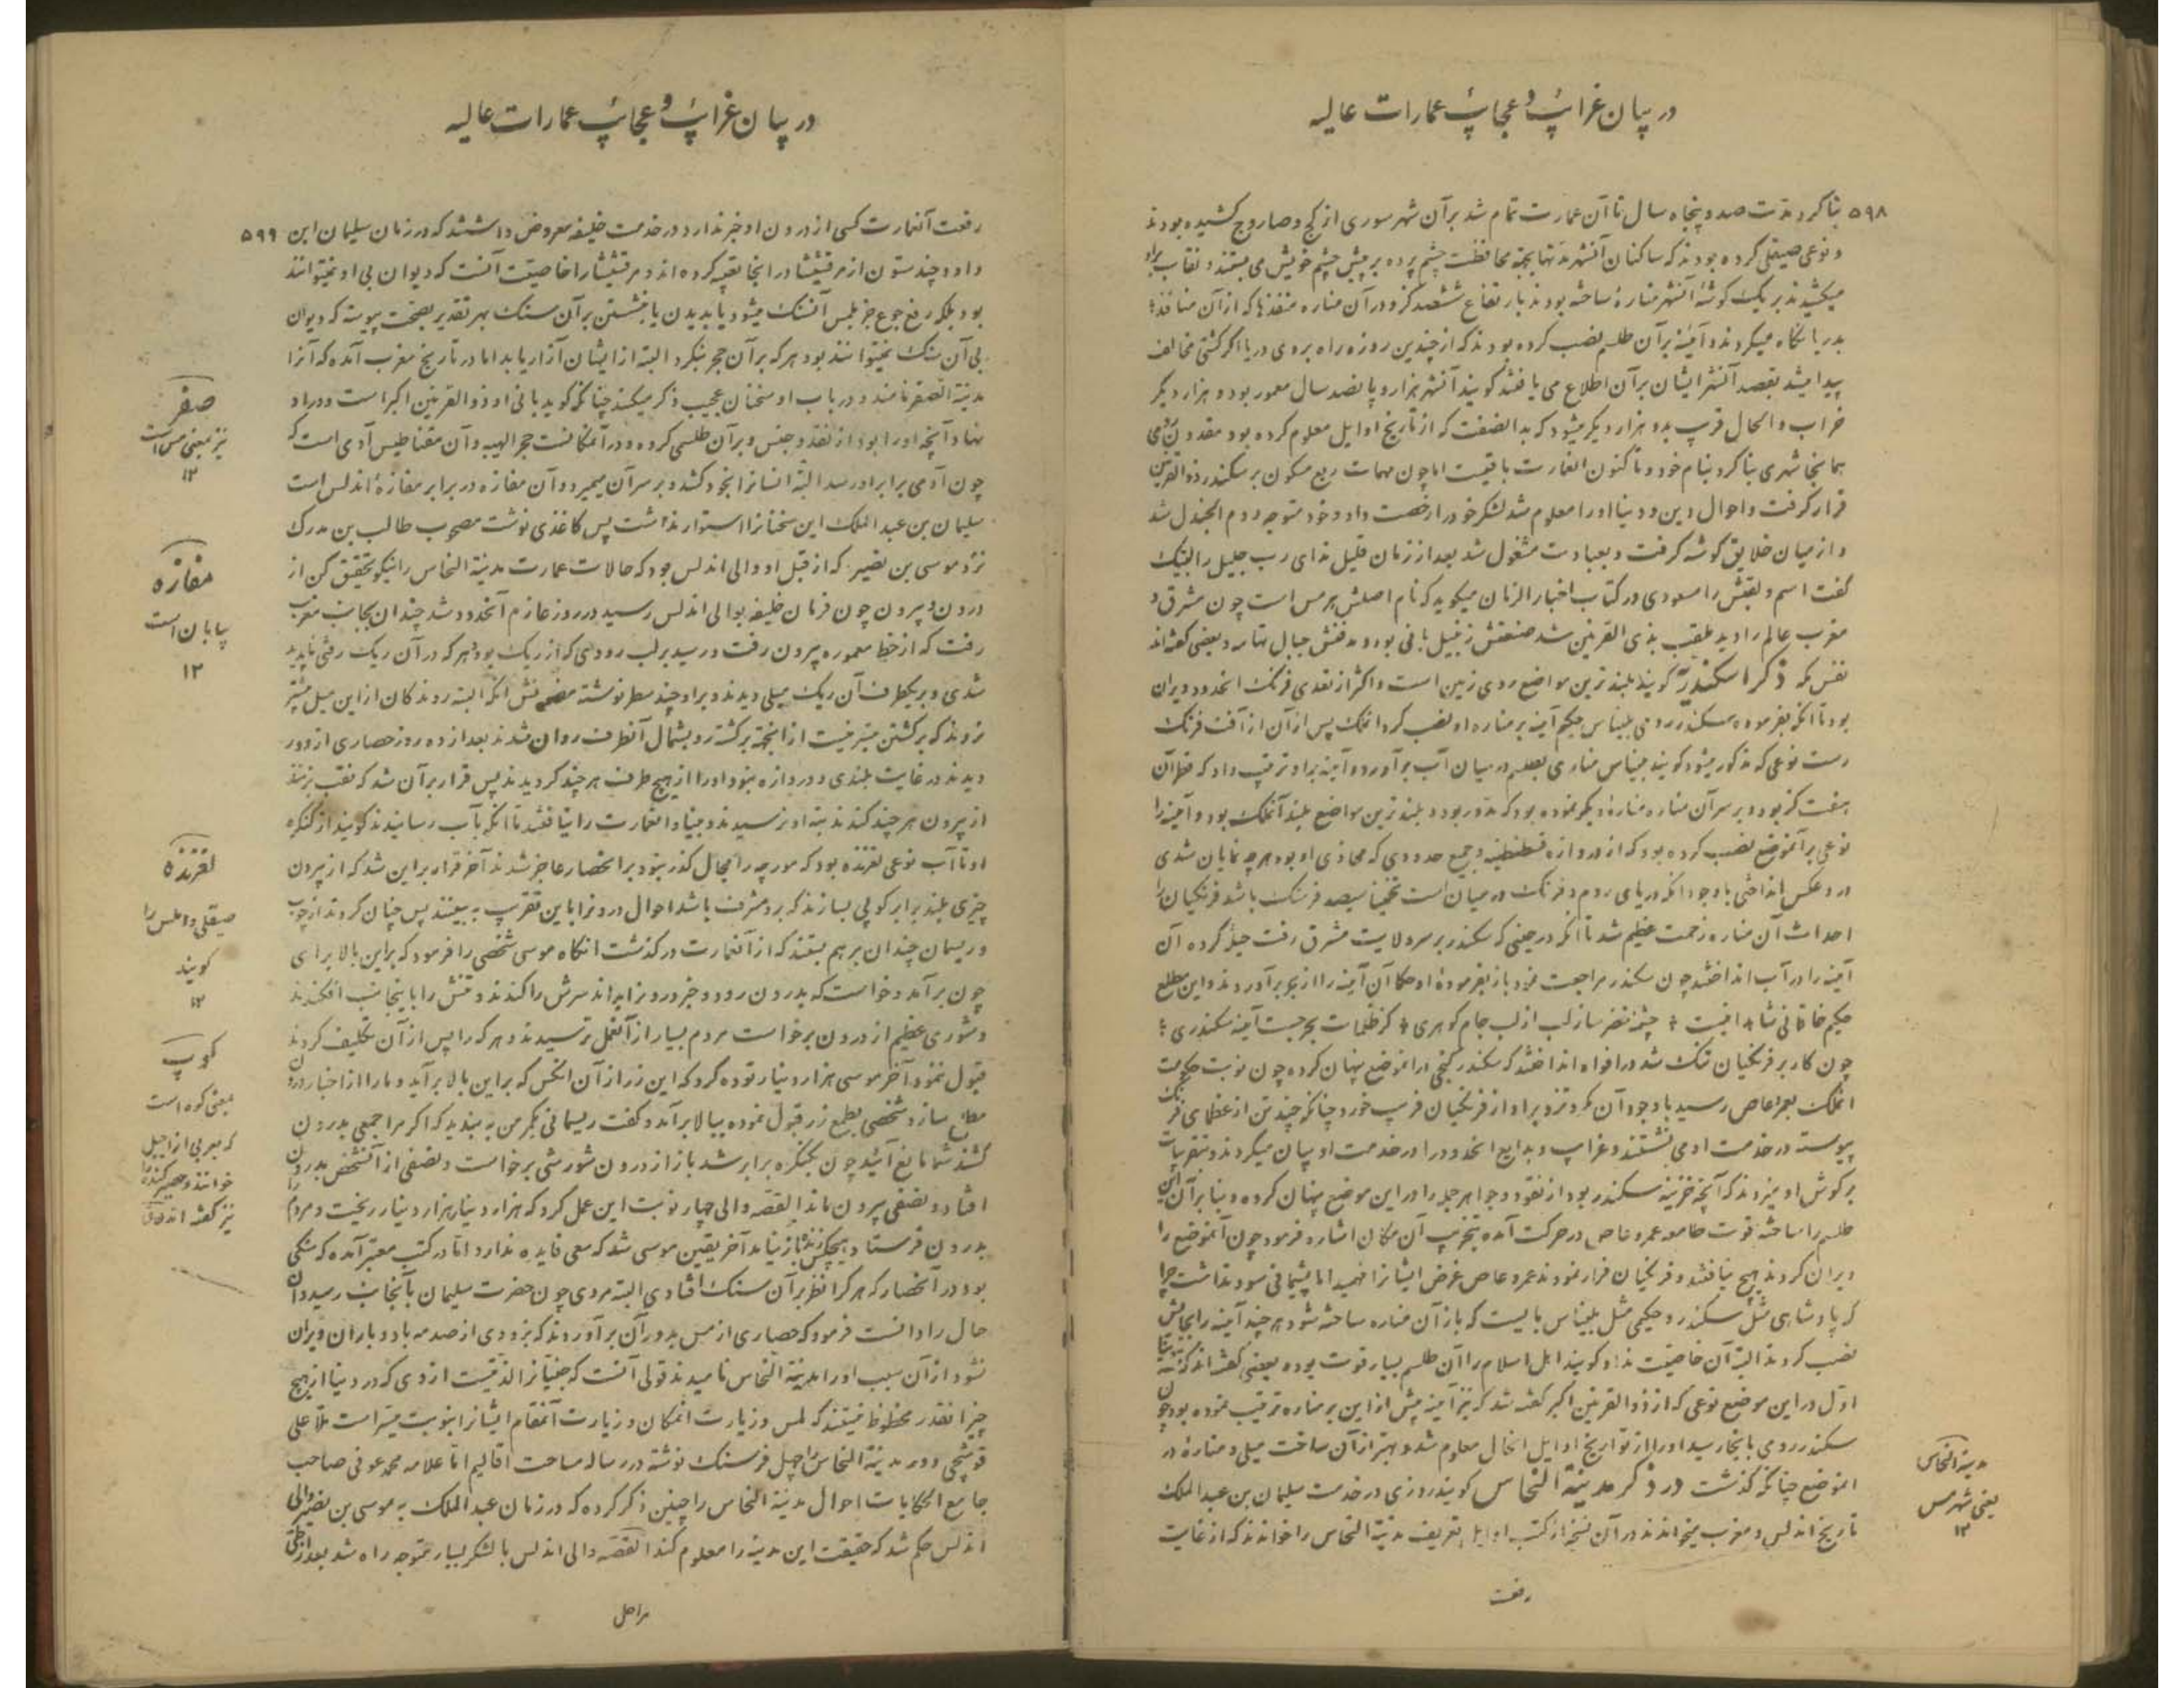 در بیان غرائب و عجائب عمارات عالیه
۵۹۸
بنا کردند مدت صد و پنجاه سال تا آن عمارت تمام شد بر آن شهر سوری از کج و صاروج کشیده بودند
و نوعی صیقلی کرده بودند که ساکنان آنشهر مدتها بجهة محافظت چشم پرده بر پیش چشم خویش می بستند و نقاب براو
میکشیدند بر یک گوشهٔ آنشهر منارهٔ ساخته بودند بارتفاع ششصد گز و در آن مناره منفذها که از آن منافذ
بدریا نگاه میکردند و آینهٔ بر آن طلسم نصب کرده بودند که از چندین روزه راه بروی دریا اگر کشتی مخالف
پیدا میشد بقصد آنشهر ایشان بر آن اطلاع می یافتند گویند آنشهر هزار و پانصد سال معمور بود و هزار دیگر
خراب و الحال قرب بدو هزار دیگر میشود که بدا نصفت که از تاریخ اوایل معلوم کرده بود مقدونی رومی
همانجا شهری بنا کرد بنام خود و تا کنون العمارت باقیست اما چون مهمات ربع مسکون بر سکندر ذو القرنین
قرار گرفت و احوال دین و دنیا او را معلوم شد لشکر خود را رخصت داد و خود متوجه دوم الجندل شد
و از میان خلایق گوشه گرفت و بعبادت مشغول شد بعد از زمان قلیل ندای رب جلیل را لبیک
گفت اسم و لقبش را مسعودی در کتاب اخبار الزمان میگوید که نام اصلش هرمس است چون مشرق و
مغرب عالم را دید ملقب بذی القرنین شد صنعتش زنبیل بافی بود و مدفنش جبال تهامه و بعضی گفته اند
نفس مکه ذکر اسکندریه گویند بلندترین مواضع روی زمین است و اکثر از تعدی فرنک انحدود ویران
بود تا آنکه بفرموده سکندر رومی بلیناس حکیم آینه بر مناره او نصب کرد انملک پس از آن از آفت فرنک
رست نوعی که مذکور میشود گویند بلیناس مناری بطلسم در میان آب بر آورد و آینه براو ترتیب داد که قطر آن
هفت گز بود و بر سر آن مناره منارهٔ دیگر نموده بود که مدور بود و بلندترین مواضع بلند آنملک بود و آینه را
نوعی بر آنموضع نصب کرده بود که از دروازه قسطنطنیه و جمیع حدودی که محاذی او بود هر چه نمایان شدی
درو عکس انداختی با وجود آنکه دریای روم و فرنک در میان است تخمینا سیصد فرسنک باشد فرنکیان را
احداث آن مناره زحمت عظیم شد تا آنکه در حینی که سکندر بر سر ولایت مشرق رفت حیله کرده آن
آینه را در آب انداختند چون سکندر مراجعت نمود باز بفرمودهٔ او حکما آن آینه را از بحر بر آوردند و این مطلع
حکیم خاقانی شاهد اینست چشمه خضر ساز لب از لب جام گوهری کز ظلمات بحر جست آینه سکندری
چون کار بر فرنکیان تنک شد در افواه انداختند که سکندر گنجی در انموضع پنهان کرده چون نوبت حکومت
انملک بعمرو عاص رسید با وجود آن مکر و تزویر او از فرنکیان فریب خورد چنانکه چند تن از عظمای فرنک
پیوسته در خدمت او می نشستند و غرایب و بدایع انحدود را در خدمت او بیان میکردند و بتقریبات
بر گوش او میزدند که آنچه خزینه سکندر بود از نقود و جواهر جمله را در این موضع پنهان کرده و بنا بر آن این
طلسم را ساخته قوت طامعه عمرو عاص در حرکت آمده بتخریب آن مکان اشاره فرمود چون آنموضع را
ویران کردند هیچ نیافتند و فرنکیان فرار نمودند عمرو عاص غرض ایشانرا فهمید اما پشیمانی سود نداشت چرا
که پادشاهی مثل سکندر و حکیمی مثل بلیناس بایست که باز آن مناره ساخته شود هر چند آینه را بجایش
نصب کردند البته آن خاصیت نداد گویند اهل اسلام را آن طلسم بسیار قوت بوده بعضی گفته اند که
اول در این موضع نوعی که از ذو القرنین اکبر گفته شد که نیز آینه پیش از این بر مناره ترتیب نموده بود چون
سکندر رومی باینجا رسید او را از تواریخ اوایل انحال معلوم شد و بهتر از آن ساخت میلی و منارهٔ در
انموضع چنانکه گذشت در ذکر مدینة النحاس گویند روزی در خدمت سلیمان بن عبد الملک
تاریخ اندلس و مغرب میخواندند در آن نسخه از کتب اوایل تعریف مدینة النحاس را خواندند که از غایت
رفعت
مدینة النحاس
یعنی شهر مس
۱۲
در بیان غرائب و عجائب عمارات عالیه
۵۹۹
رفعت آنعمارت کسی از درون او خبر ندارد در خدمت خلیفه معروض داشتند که در زمان سلیمان ابن
داود چند ستون از مرقشیشا در انجا تعبیه کرده اند و مرقشیشا را خاصیت آنست که دیوان بی او نمیتوانند
بود بلکه رفع جوع جز بلمس آنسنک میشود یا بدیدن یا بنشستن بر آن سنک بهر تقدیر بصحت پیوسته که دیوان
بی آن سنک نمیتوانند بود هر که بر آن حجر بنگرد البته از ایشان آزار یابد اما در تاریخ مغرب آمده که آنرا
مدینة الصفر نامند و در باب او سخنان عجیب ذکر میکند چنانکه گوید بانی او ذو القرنین اکبر است و در او
نهاد آنچه او را بود از نقد و جنس و بر آن طلسمی کرده و در آنمکانست حجر الهیه و آن مقناطیس آدمی است که
چون آدمی برابر او رسد البته انسانرا بخود کشد و بر سر آن میمیرد و آن مفازه در برابر مفازهٔ اندلس است
سلیمان بن عبد الملک این سخنانرا استوار نداشت پس کاغذی نوشت مصحوب طالب بن مدرک
نزد موسی بن نصیر که از قبل او والی اندلس بود که حالات عمارت مدینة النحاس را نیکو تحقیق کن از
درون و بیرون چون فرمان خلیفه بوالی اندلس رسید در روز عازم آنحدود شد چندان بجانب مغرب
رفت که از خط معموره بیرون رفت و رسید بر لب رودی که از ریک بود هر که در آن ریک رفتی ناپدید
شدی و بر یکطرف آن ریک میلی دیدند و براو چند سطر نوشته مضمونش آنکه البته روندگان از این میل پیشتر
نروند که برگشتن میسر نیست از اینجهة برگشته رو بشمال آنطرف روان شدند بعد از ده روز حصاری از دور
دیدند در غایت بلندی و دروازه نبود او را از هیچ طرف هر چند گردیدند پس قرار بر آن شد که نقب بزنند
از بیرون هر چند کندند بته او نرسیدند و بنیاد آنعمارت را نیافتند تا آنکه بآب رسانیدند گویند از کنگره
او تا آب نوعی لغزنده بود که مورچه را مجال گذر نبود بر انحصار عاجز شدند آخر قرار بر این شد که از بیرون
چیزی بلند برابر کوپی بسازند که برو مشرف باشد احوال درونرا باین تقریب به بینند پس چنان کردند از چوب
و ریسمان چندان بر هم بستند که از آنعمارت در گذشت انگاه موسی شخصی را فرمود که براین بالا برای
چون بر آمد و خواست که بدرون رود و خبر درونرا بداند سرش را کندند و تنش را باینجانب افکندند
و شوری عظیم از درون برخواست مردم بسیار از آنعمل ترسیدند و هر که را پس از آن تکلیف کردند
قبول ننمود آخر موسی هزار دینار توده کرد که این زر از آن انکس که براین بالا بر آید و ما را از اخبار درون
مطلع سازد شخصی بطمع زر قبول نموده ببالا بر آمد و گفت ریسمانی بکمر من به بندید که اگر مرا جمعی بدرون
کشند شما مانع آئید چون بکنگره برابر شد باز از درون شورشی برخواست و نصفی از آنشخص بدرون
افتاد و نصفی بیرون ماند القصه والی چهار نوبت این عمل کرد که هزار دینار هزار دینار ریخت و مردم را
بدرون فرستاد و هیچکس زنده باز نیامد آخر یقین موسی شد که سعی فایده ندارد اما در کتب معتبر آمده که سنگی
بود در آنحصار که هر کرا نظر بر آن سنک افتادی البته مردی چون حضرت سلیمان بآنجانب رسید و آن
حال را دانست فرمود که حصاری از مس بدور آن بر آوردند که بزودی از صدمه باد و باران ویران
نشود از آن سبب او را مدینة النحاس نامیدند قولی آنست که جنیانرا لذتیست از وی که در دنیا از هیچ
چیز انقدر محظوظ نیستند که لمس و زیارت انمکان و زیارت آنمقام ایشانرا بنوبت میسر است ملا علی
قوشچی دور مدینة النحاس را چهل فرسنک نوشته در رساله مساحت اقالیم اما علامه محمد عوفی صاحب
جامع الحکایات احوال مدینة النحاس را چنین ذکر کرده که در زمان عبد الملک به موسی بن نصیر والی
اندلس حکم شد که حقیقت این مدینه را معلوم کند القصه والی اندلس با لشکر بسیار متوجه راه شد بعد از طی
مراحل
صفر
نیز بمعنی مس است
۱۲
مفازه
بیابان است
۱۲
لغزنده
صیقلی و املس را
گویند
۱۲
کوپ
بمعنی کوه است
که بعربی از اجبل
خوانند و حصیر گنده را
نیز گفته اند